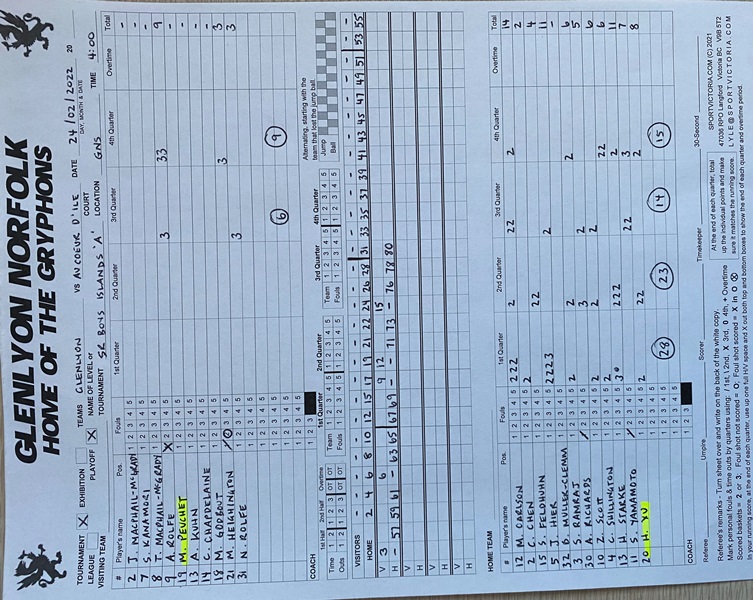 GLENLYON NORFOLK
HOME OF THE GRYPHONS
TOURNAMENT X EXHIBITION TEAMS GLENLYON VS AU COEUR D'ILE DATE 24/02/2022 20
DAY, MONTH & DATE
LEAGUE PLAYOFF X NAME OF LEVEL or TOURNAMENT SR BOYS ISLANDS 'A' COURT LOCATION GNS TIME 4:00
VISITING TEAM
# Player's name Pos. Fouls 1st Quarter 2nd Quarter 3rd Quarter 4th Quarter Overtime Total
2 J. MACPHAIL-MCGRADY 1 2 3 4 5 -
7 S. KANAMORI 1 2 3 4 5 -
8 T. MACPHAIL-MCGRADY 1 2 3 4 5 3 33 9
9 A. ROLFE 1 2 3 4 5 -
19 M. PEUCHET 1 2 3 4 5 -
13 A. RODIN 1 2 3 4 5 -
14 C. CHAPDELAINE 1 2 3 4 5 -
18 M. GODBOUT 1 2 3 4 5 3 3
21 M. HEIGHINGTON 1 2 3 4 5 3 3
31 N. ROLFE 1 2 3 4 5
6 9
COACH 1 2 3
Alternating, starting with the team that lost the jump ball.
1st Half 2nd Half Overtime 1st Quarter 2nd Quarter 3rd Quarter 4th Quarter Jump
Time 1 2 1 2 3 OT OT Team 1 2 3 4 5 1 2 3 4 5 1 2 3 4 5 1 2 3 4 5 Ball
Outs 1 2 1 2 3 OT OT Fouls 1 2 3 4 5 1 2 3 4 5 1 2 3 4 5 1 2 3 4 5
VISITORS
HOME 2 4 6 8 10 12 15 17 19 21 22 24 26 28 31 33 35 37 39 41 43 45 47 49 51 53 55
V 3 6 9 12 15
H - 57 59 61 - 63 65 67 69 - - 71 73 - 76 78 80
V
H
V
H
V
H
HOME TEAM
# Player's name Pos. Fouls 1st Quarter 2nd Quarter 3rd Quarter 4th Quarter Overtime Total
12 M. CARLSON 1 2 3 4 5 222 2 22 2 14
2 C. CHEN 1 2 3 4 5 2 2
15 S. FELDHUHN 1 2 3 4 5 22 4
5 J. HIER 1 2 3 4 5 2223 2 11
32 B. MULLER-CLEMM 1 2 3 4 5 2 2 6
3 S. RAMRAJ 1 2 3 4 5 2 3 2 5
30 A. RICHARDS 1 2 3 4 5
10 Z. SCOTT 1 2 3 4 5 2 2 2 22 6
4 C. SHILLINGTON 1 2 3 4 5 2 222 2 11
13 H. STARKE 1 2 3 4 5 3 22 3 7
11 S. YAMAMOTO 1 2 3 4 5 2 22 2 8
20 H. YU 1 2 3 4 5
28 23 14 15
COACH 1 2 3
Referee Umpire Scorer Timekeeper 30-Second
Referee's remarks - Turn sheet over and write on the back of the white copy.
Mark personal fouls & time outs by quarters using: / 1st, \ 2nd, X 3rd, 4th, + Overtime
Scored baskets = 2 or 3; Foul shot not scored = O; Foul shot scored = X in O
In your running score, at the end of each quarter, use up one full H/V space and X out both top and bottom boxes to show the end of each quarter and overtime period.
At the end of each quarter, total up the individual points and make sure it matches the running score.
SPORTVICTORIA.COM (C) 2021
47036 RPO Langford Victoria BC V9B 5T2
LYLE@SPORTVICTORIA.COM